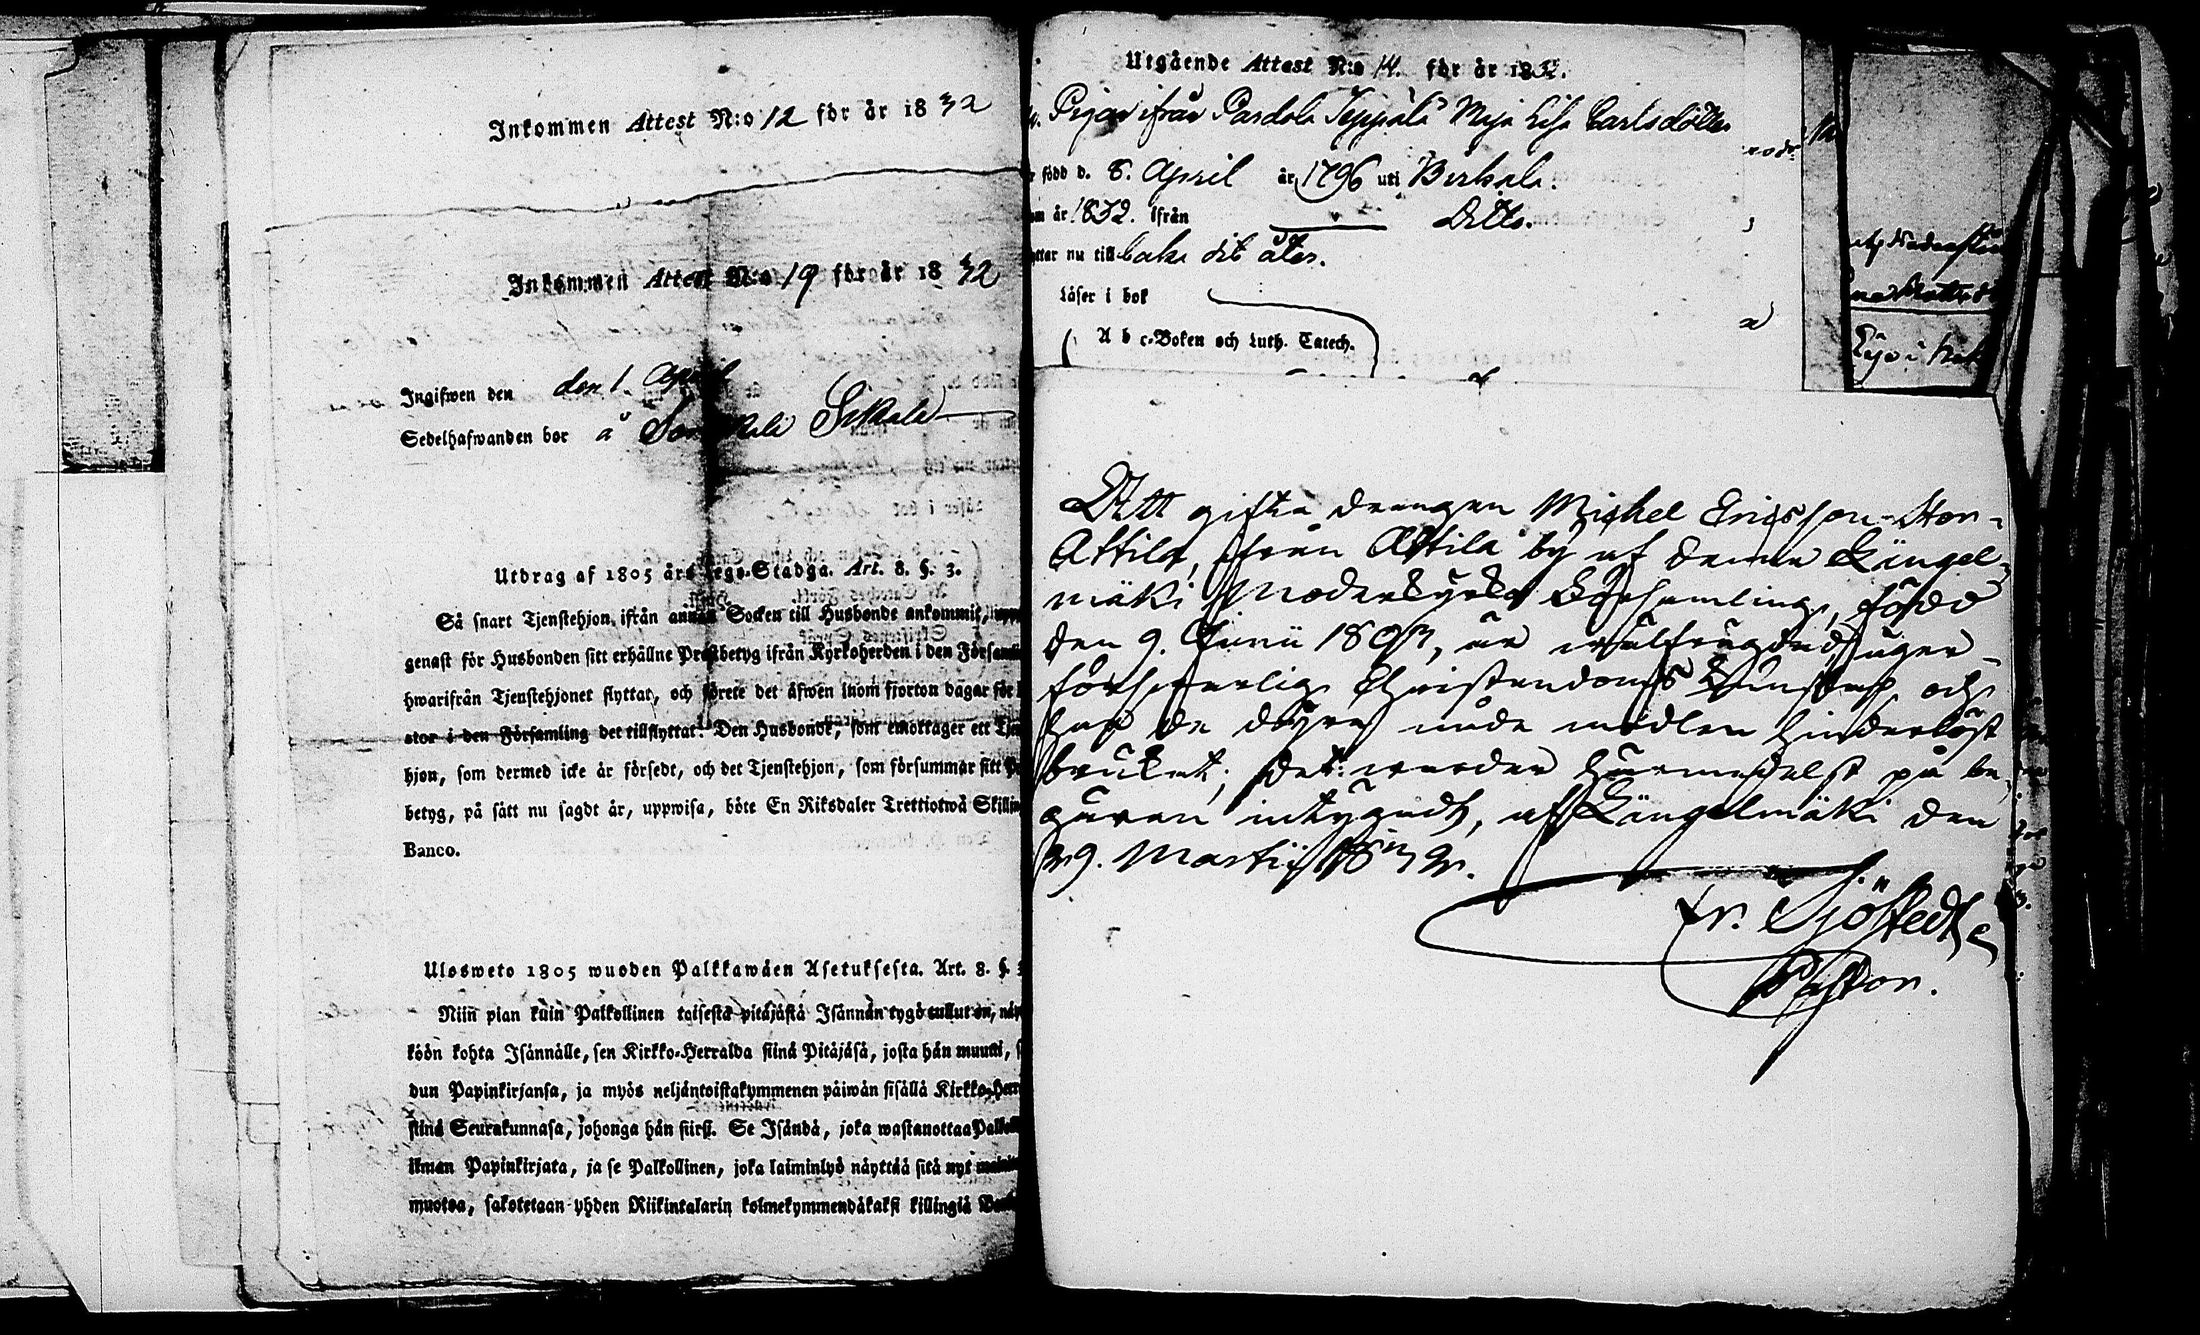 Inkommen Attest N:o 12 för år 1832
Inkommen Attest N:o 19 för år 1832
Ingifwen den den 1. April
Sedelhafwanden bor å
Utdrag af 1805 års Lego-Stadga. Art. 8. §. 3.
Så snart Tjenstehjon ifrån annan Socken till Husbonde ankommit,
genast för Husbonden sitt erhållne Prestbetyg ifrån Kyrkoherden i den
hwarifrån Tjenstehjonet flyttat, och förete det äfwen inom fjorton dagar för
stor i den Församling det tillflyttat. Den Husbonde, som emottager ett
hjon, som dermed icke är försedt, och det Tjenstehjon, som försummar sitt
betyg, på sätt nu sagdt är, uppwisa, böte En Riksdaler Trettiotwå
Banco.
Ulosweto 1805 wuoden Palkkawäen Asetuksesta. Art. 8. §.
Niin pian kuin Palkollinen toisesta pitäjästä Isännän tygö tullut on,
köön kohta Isännälle, sen Kirkko-Herralda siinä Pitäjäsä, josta hän muutti,
dun Papinkirjansa, ja myös neljäntoistakymmenen päiwän sisällä
siinä Seurakunnasa, johonga hän siirsi. Se Isändä, joka wastanottaa
ilman Papinkirjata, ja se Palkollinen, joka laiminlyö näyttää sitä nyt
muotoa, sakotetaan yhden Riikintalarin kolmekymmendäkaksi killingiä
Utgående Attest N:o 14. för år 1832.
Pigan ifrån Pardola Seppälä Maja Lisa Carlsdotter
född d. 8. April år 1796 uti Birkala.
år 1832. ifrån Ditto.
nu tillbaka dit åter.
Läser i bok
A b c-Boken och Luth. Catech.
Att gifta drängen Michel Ericsson Stor-
Attila, från Attila by af denna Längel-
mäki Moderkyrko Församling, född
den 9. Junii 1803, är wälfrägdad, äger
försvarlig Christendoms Kunskap och
har de dyra nåde medlen hinderlöst
brukat; det warder härmedelst på be-
gäran intygadt, af Längelmäki den
29. Martii 1832.
Fr. Sjöstedt
Pastor.